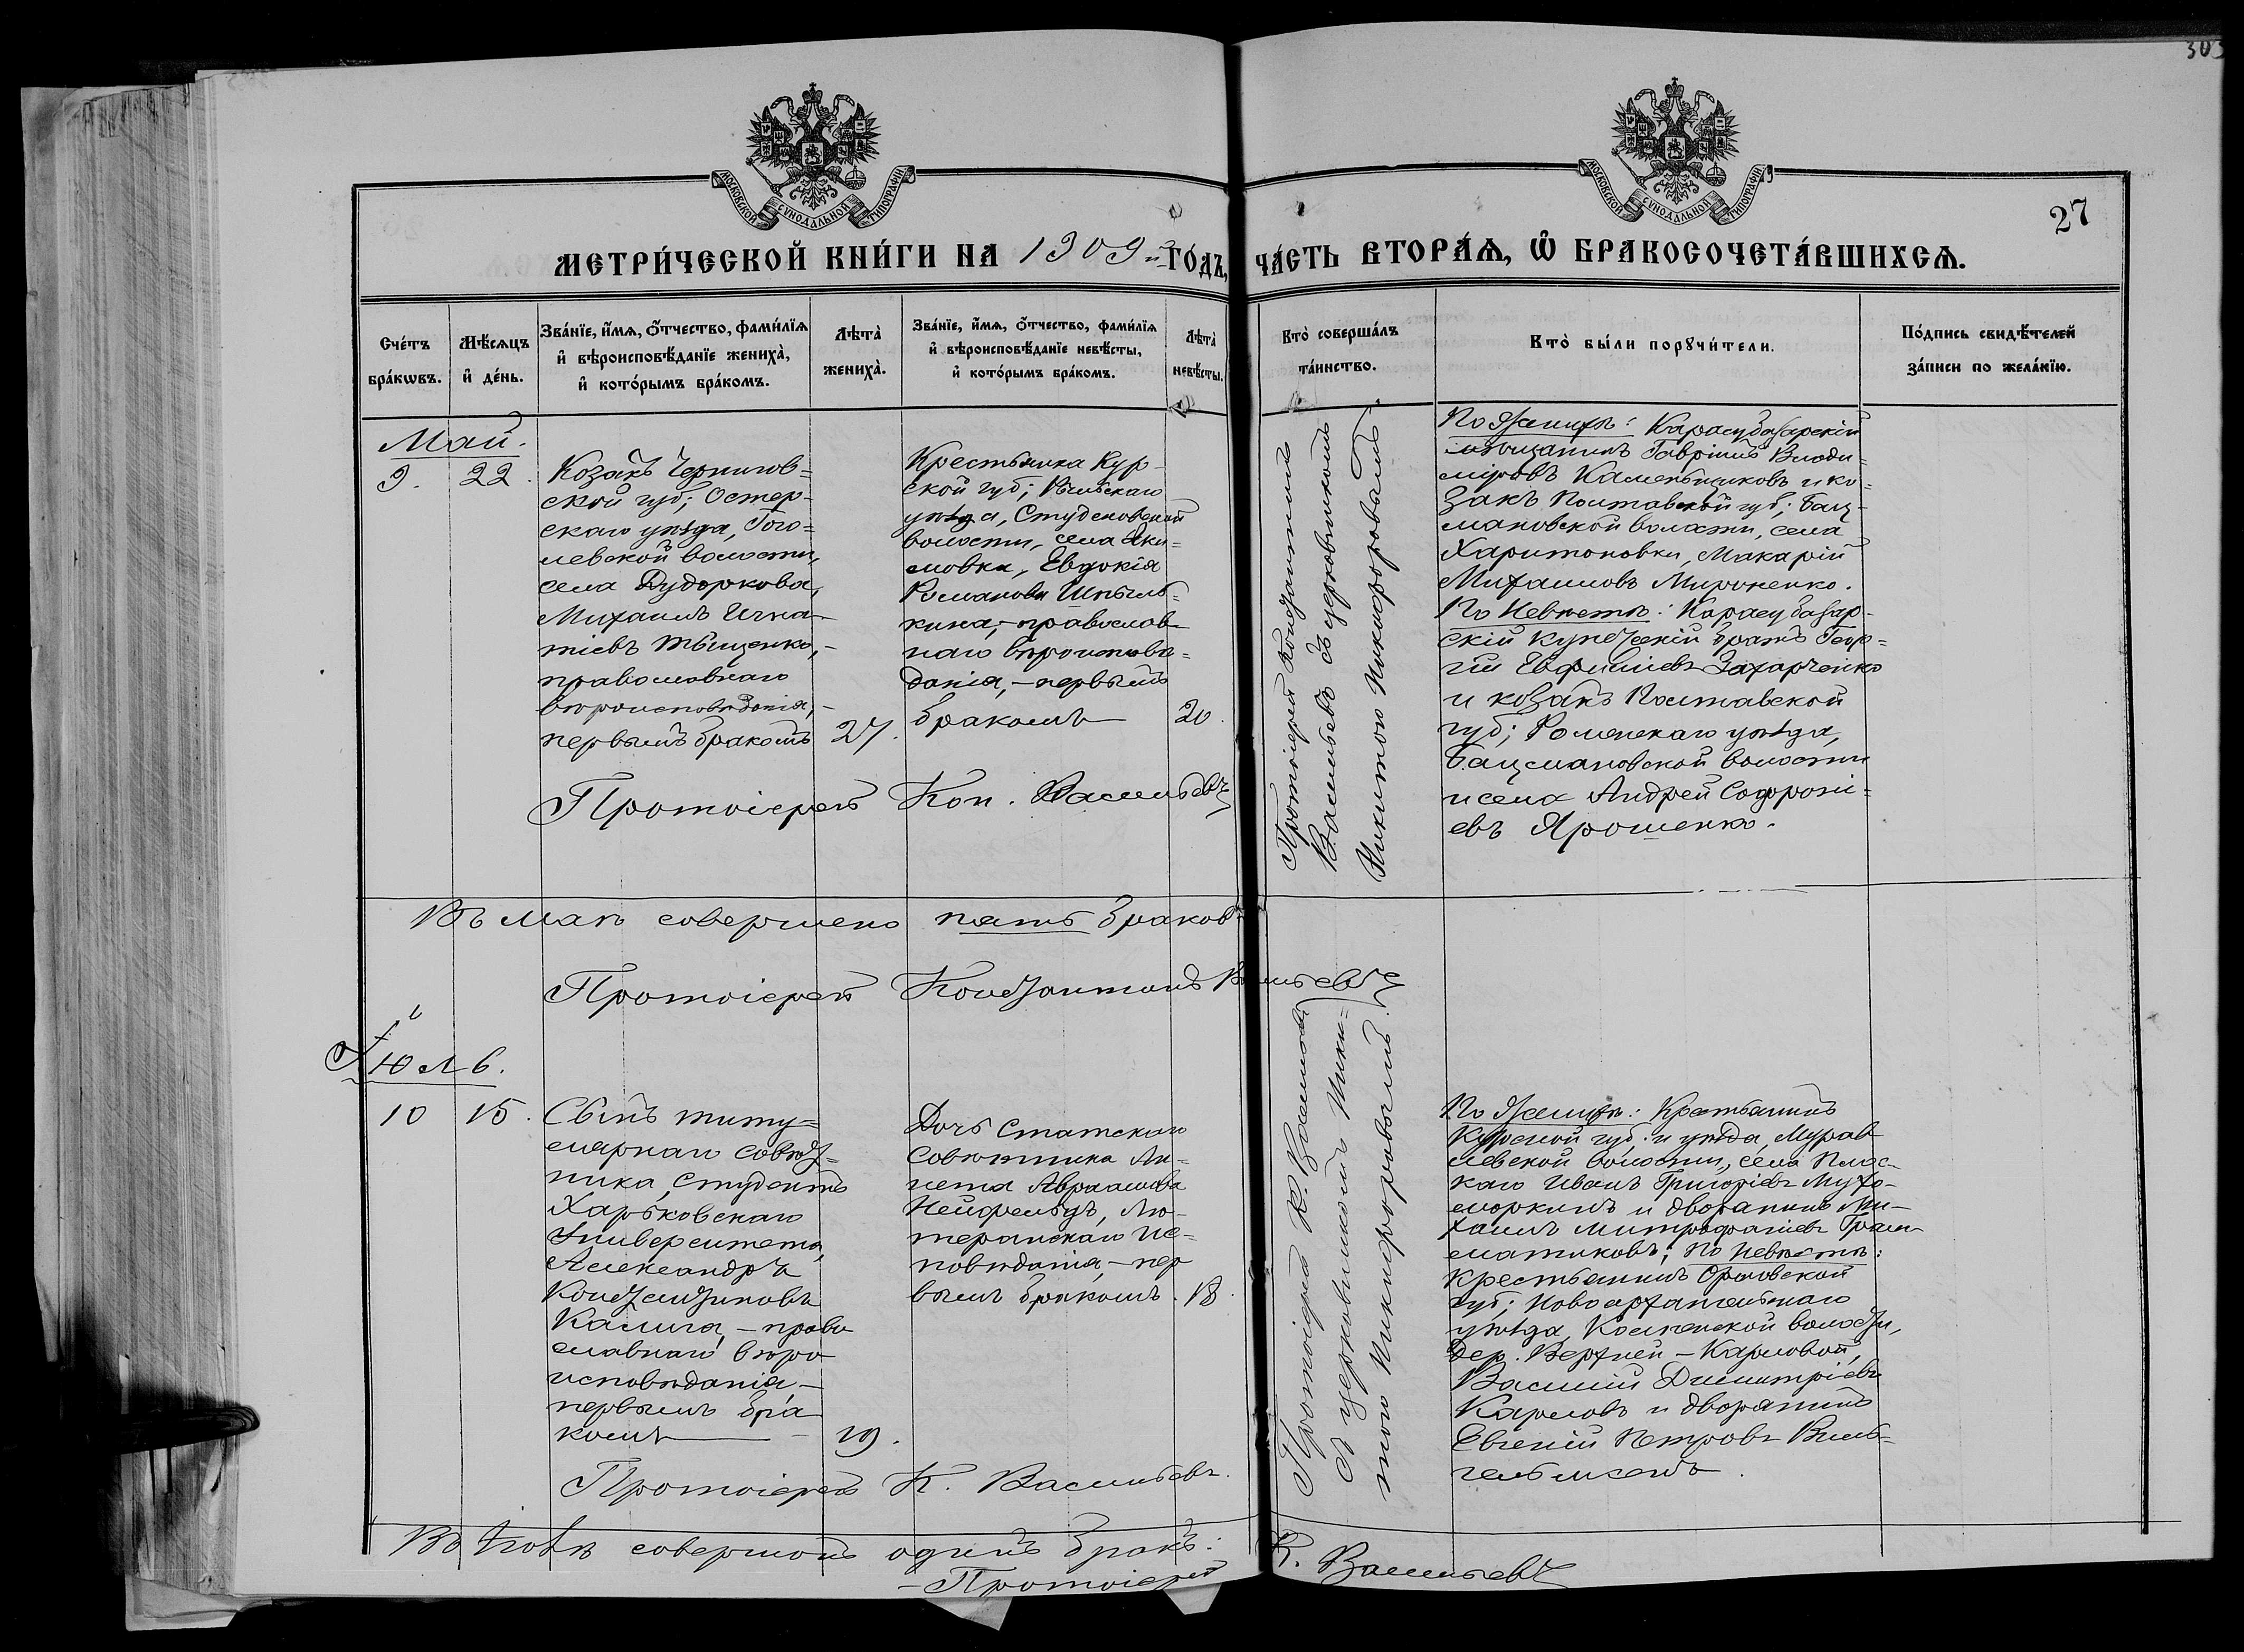 303
27
МОСКОВСКОЙ СѴНОДАЛЬНОЙ ТИПОГРАФІИ
МОСКОВСКОЙ СѴНОДАЛЬНОЙ ТИПОГРАФІИ
МЕТРИ́ЧЕСКОЙ КНИ́ГИ НА 1909 й ГОДЪ, ЧА́СТЬ ВТОРА́Ѧ, Ѽ БРАКОСОЧЕТА́ВШИХСѦ.
Сче́тъ бра́кѡвъ.
Мѣ́сѧцъ и҆ де́нь.
Зва́нїе, и҆́мѧ, ѻ҆́тчество, фами́лїѧ
и҆ вѣроисповѣ́данїе жениха̀,
и҆ кото́рымъ бра́комъ.
Лѣта̀ жениха̀.
Зва́нїе, и҆́мѧ, ѻ҆́тчество, фами́лїѧ
и҆ вѣроисповѣ́данїе невѣ́сты,
и҆ кото́рымъ бра́комъ.
Лѣта̀ невѣ́сты.
Кто̀ соверша́лъ
та́инство.
Кто̀ бы́ли порꙋчи́тели.
По́дпись свидѣ́телей
за́писи по жела́нїю.
Май.
9. 22.
Козакъ Чернигов=
ской губ; Остер-
скаго уѣзда, Гого=
левской волости,
села Дударкова,
Михаилъ Игна-
тіевъ Тыщенко,-
православнаго
вѣроисповѣданія,-
первымъ бракомъ 27.
Крестьянка Кур-
ской губ; Рыльскаго
уѣзда, Студеновской
волости, села Аки=
мовки, Евдокія
Романова
кина,- православ-
наго вѣроисповѣ=
данія,- первымъ
бракомъ 20.
Протоіерей Константинъ
Васильевъ съ церковникомъ
Никитою Никифоровымъ.
По Женихѣ: Карасубазарскій
мѣщанинъ Гавріилъ Влади-
міровъ Каменьщиковъ и ко-
закъ Полтавской губ; Бац-
мановской волости, села
Харитоновки, Макарій
Михаиловъ Мироненко.
По Невѣстѣ: Карасубазар-
скій купеческій братъ Геор=
гій Евфиміевъ Захарченко
и козакъ Полтавской
губ; Роменскаго уѣзда,
Бацмановской волости
и села Андрей Софроні=
евъ Ярошенко.
Протоіерей Кон. Васильевъ
Въ маѣ совершено пять браковъ
Протоіерей Константинъ Васильевъ
Іюль.
10 15.
Сынъ титу=
лярнаго совѣт=
ника, студентъ
Харьковскаго
Университета,
Александръ
Константиновъ
, - право
славнаго вѣро
исповѣданія,-
первымъ бра
комъ 19.
Дочь Статскаго
Совѣтника Ан-
нета Авраамова
Нейфельдъ, Лю-
теранскаго ис-
повѣданія,- пер
вымъ бракомъ. 18.
Протоіерей К. Васильевъ
съ церковникомъ Ники=
тою Никифоровымъ.
По Женихѣ: Крестьянинъ
Курской губ. и уѣзда, Мурав
левской волости, села Плос-
каго Иванъ Григоріевъ Мухо-
моркинъ и дворянинъ Ми-
хаилъ Митрофаніевъ Грам-
матиковъ; По Невѣстѣ:
крестьянинъ Орловской
губ;
уѣзда, волости,
Дер. Верхней-Карловой,
Василій Димитріевъ
Карловъ и дворянинъ
Евгеній Петровъ Виль=
гельмсонъ.
Протоіерей К. Васильевъ.
Въ Іюлѣ совершонъ одинъ бракъ:
- Протоіерей К. Васильевъ